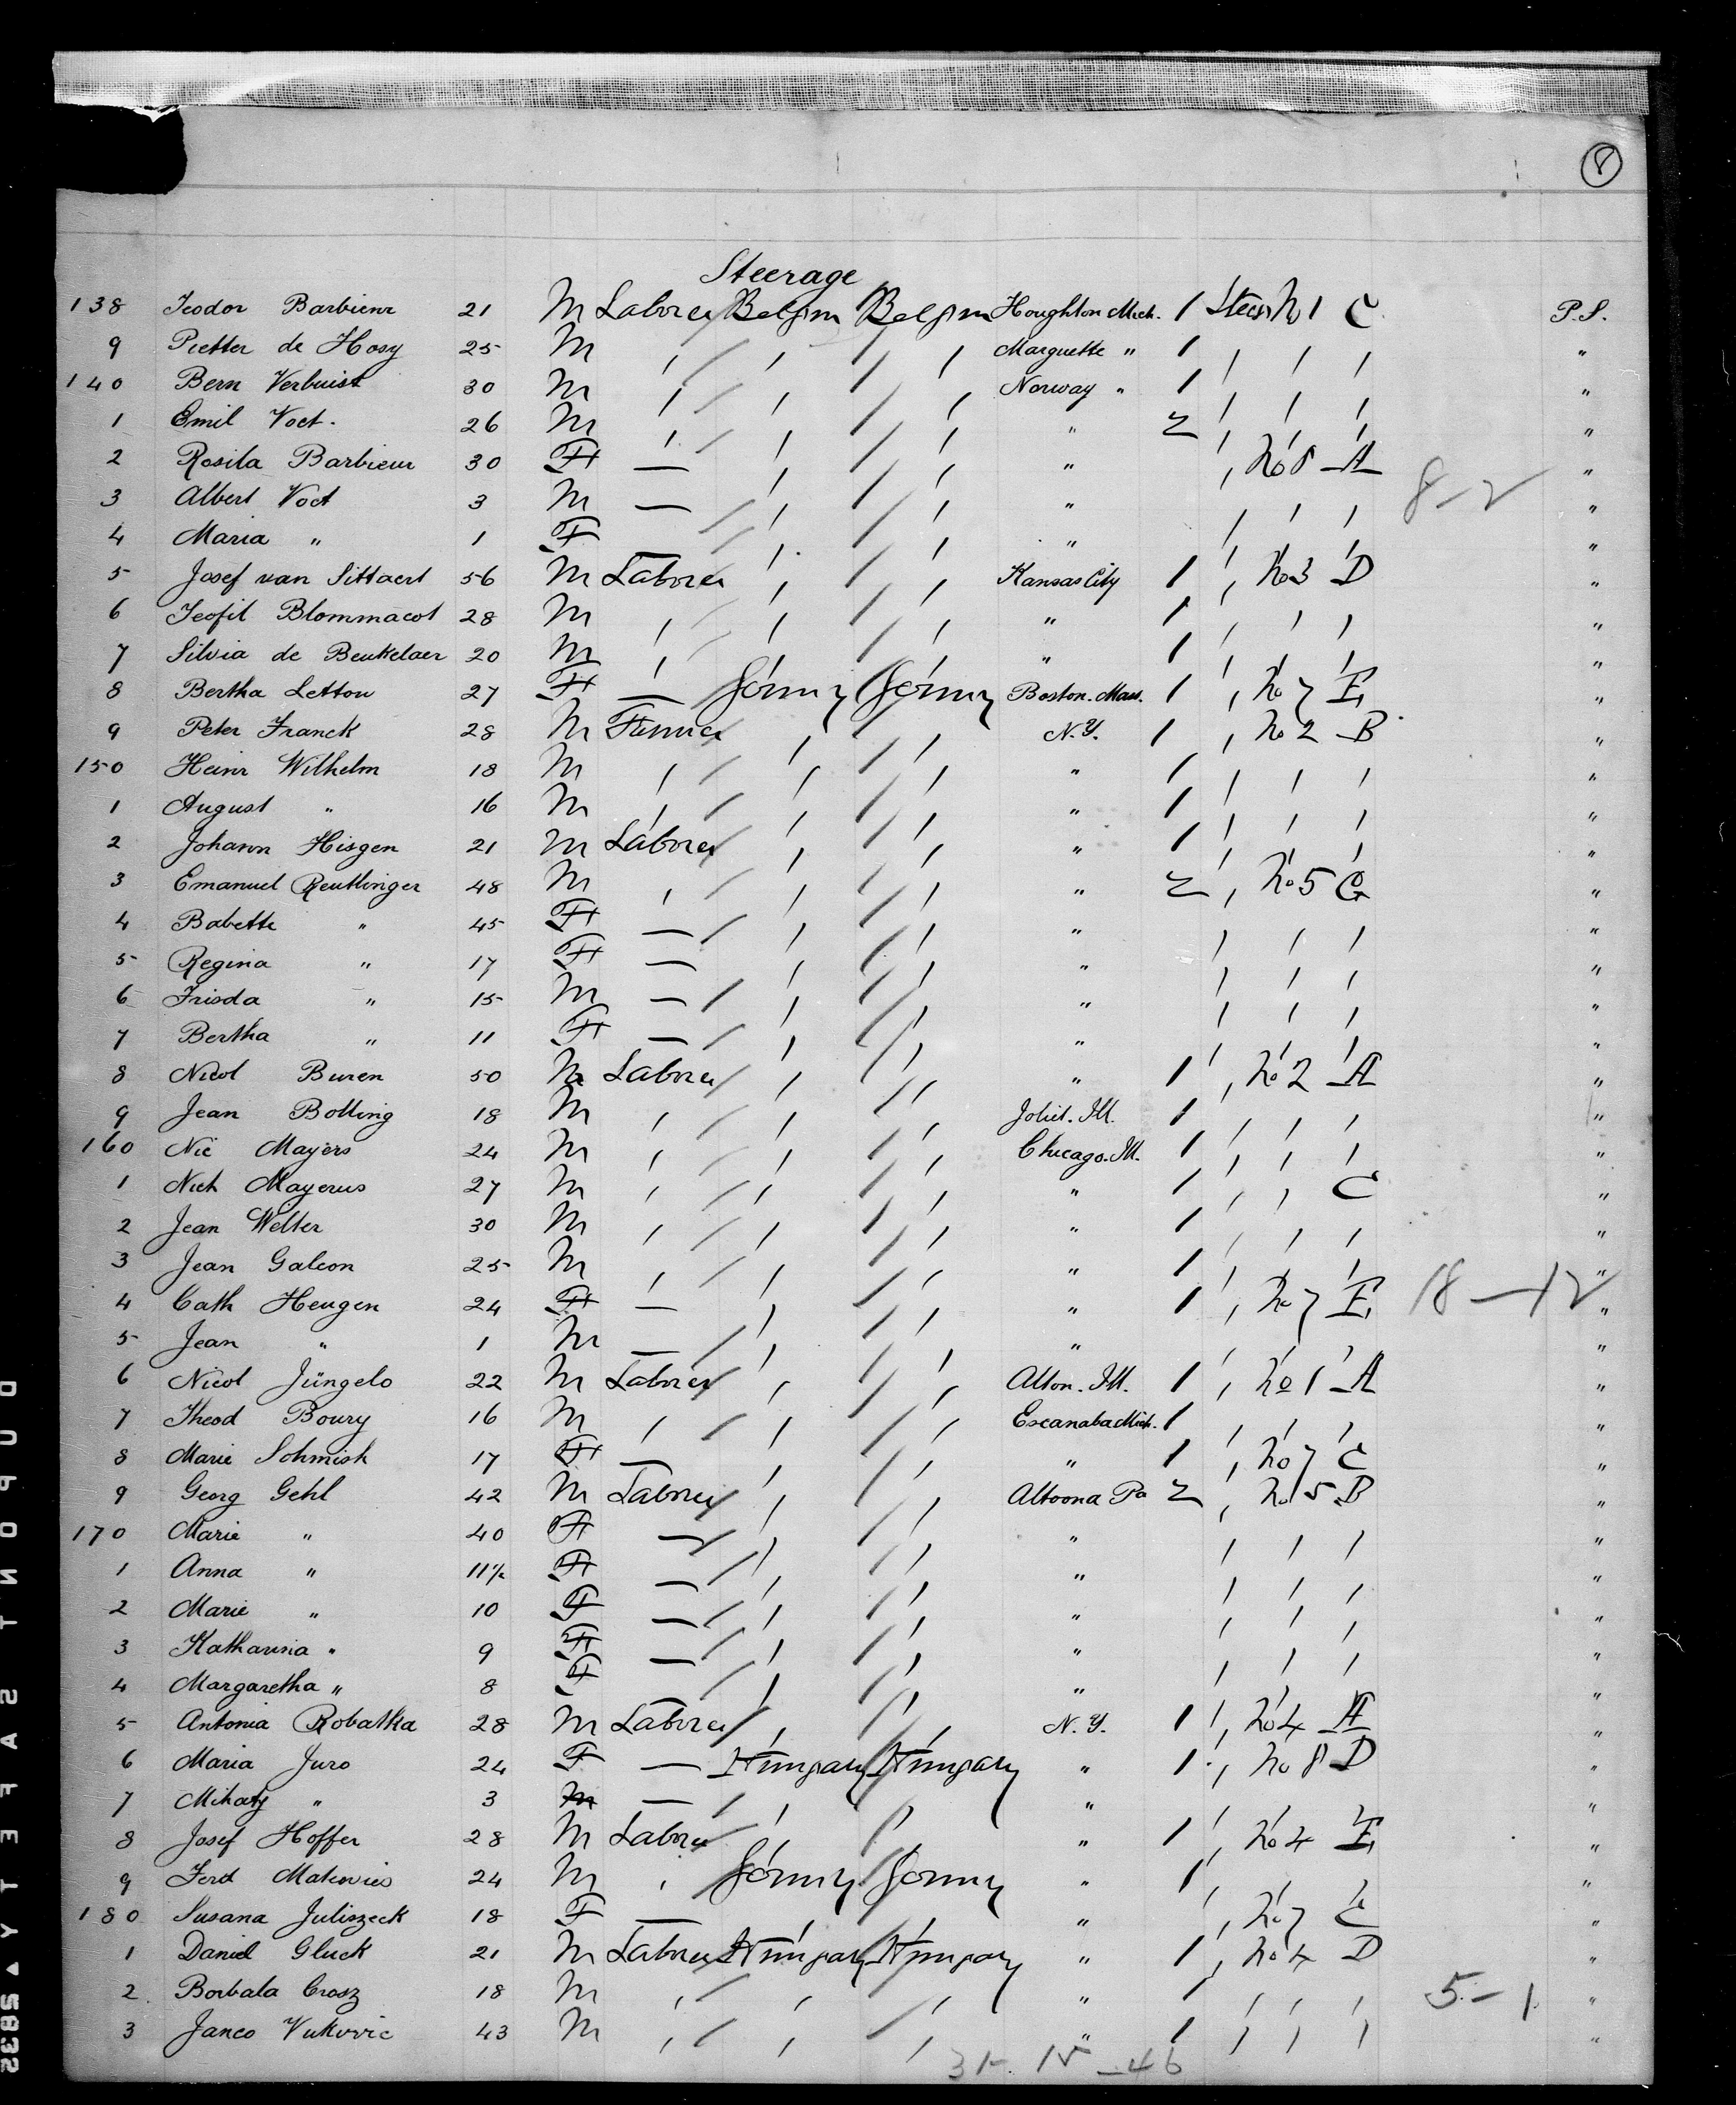 8
Steerage
138 Teodor Barbieur 21 M Laborer Belgim Belgim Houghton Mich. 1 Steer No 1 C P.S.
9 Pietter de Hosy 25 M ' ' ' Marquette " 1 ' ' ' "
140 Bern Verbuist 30 M ' ' ' Norway " 1 ' ' ' "
1 Emil Voet. 26 M ' ' ' " 2 ' ' ' "
2 Rosila Barbieur 30 F — ' ' " ' No 8 A "
3 Albert Voet 3 M — ' ' " ' ' ' 8-2 "
4 Maria " 1 F — ' ' " ' ' ' "
5 Josef van Sittaert 56 M Laborer ' ' Kansas City 1 ' No 3 D "
6 Teofil Blommacot 28 M ' ' ' " 1 ' ' ' "
7 Silvia de Beukelaer 20 M ' ' ' " 1 ' ' ' "
8 Bertha Lettow 27 F — Germy Germy Boston. Mass. 1 ' No 7 E "
9 Peter Franck 28 M Farmer ' ' N.Y. 1 ' No 2 B "
150 Heinr Wilhelm 18 M ' ' ' " 1 ' ' ' "
1 August " 16 M ' ' ' " 1 ' ' ' "
2 Johann Hisgen 21 M Laborer ' ' " 1 ' ' ' "
3 Emanuel Reutlinger 48 M ' ' ' " 2 ' No 5 C "
4 Babette " 45 F — ' ' " ' ' ' "
5 Regina " 17 F — ' ' " ' ' ' "
6 Frieda " 15 M — ' ' " ' ' ' "
7 Bertha " 11 F — ' ' " ' ' ' "
8 Nicol Buren 50 M Laborer ' ' " 1 ' No 2 A "
9 Jean Bolling 18 M ' ' ' Joliet. Ill. 1 ' ' ' "
160 Nic Mayers 24 M ' ' ' Chicago. Ill. 1 ' ' ' "
1 Nich Mayerus 27 M ' ' ' " 1 ' ' C "
2 Jean Welter 30 M ' ' ' " 1 ' ' ' "
3 Jean Galeon 25 M ' ' ' " 1 ' ' ' "
4 Cath Hengen 24 F — ' ' " 1 ' No 7 E 18-12 "
5 Jean " 1 M — ' ' " ' ' ' "
6 Nicol Jüngelo 22 M Laborer ' ' Alton. Ill. 1 ' No 1 A "
7 Theod Boury 16 M ' ' ' Escanaba Mich. 1 ' ' ' "
8 Marie Schmish 17 F — ' ' " 1 ' No 7 C "
9 Georg Gehl 42 M Laborer ' ' Altoona Pa 2 ' No 5 B "
170 Marie " 40 F — ' ' " ' ' ' "
1 Anna " 11½ F — ' ' " ' ' ' "
2 Marie " 10 F — ' ' " ' ' ' "
3 Katharina " 9 F — ' ' " ' ' ' "
4 Margaretha " 8 F — ' ' " ' ' ' "
5 Antonia Robatka 28 M Laborer ' ' N.Y. 1 ' No 4 A "
6 Maria Juro 24 F — Hungary Hungary " 1 ' No 8 D "
7 Mihaly " 3 M — ' ' " "
8 Josef Hoffer 28 M Laborer ' ' " 1 ' No 4 E "
9 Ferd Matevies 24 M ' Germy Germy " 1 ' ' ' "
180 Susana Juliszeck 18 F — ' ' " ' No 7 C "
1 Daniel Gluck 21 M Laborer Hungary Hungary " 1 ' No 4 D "
2 Borbala Crosz 18 M ' ' ' " 1 ' ' ' 5-1 "
3 Janco Vukovic 43 M ' ' ' " 1 ' ' ' "
31-15-46